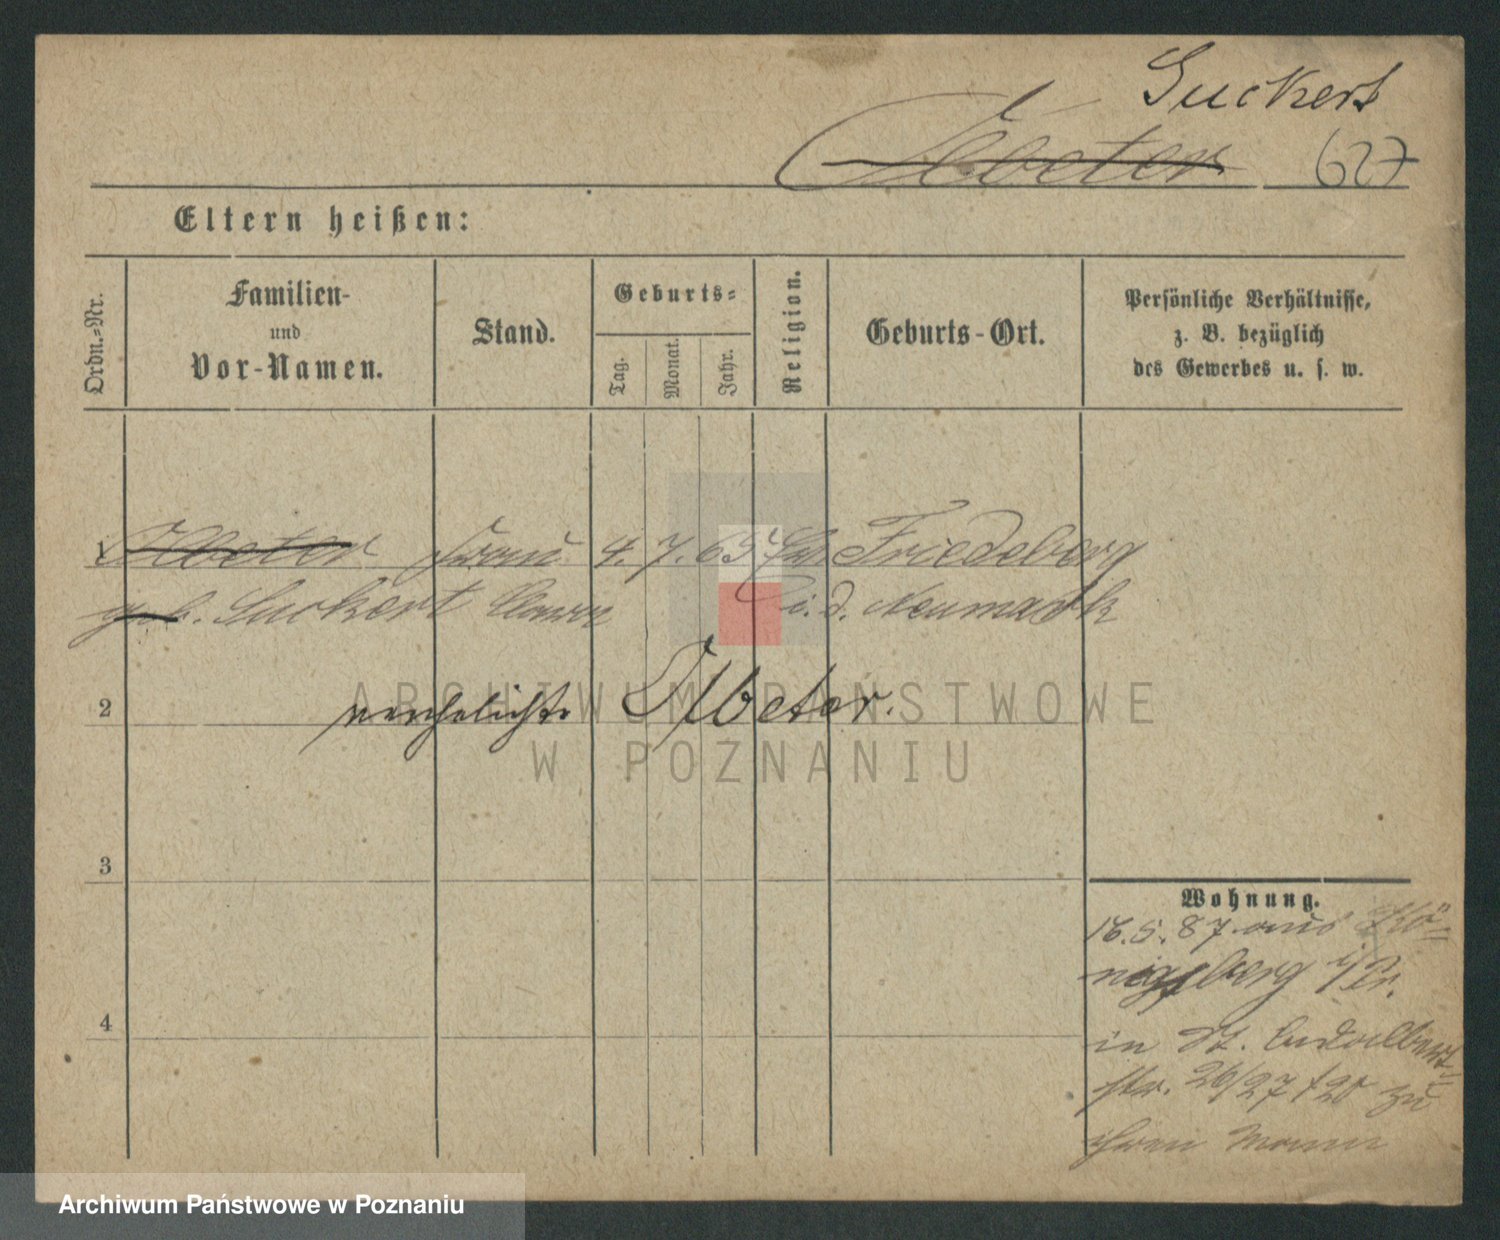 Suckert
Ilbeter 627
Eltern heißen:
Ordn.-Nr.
Familien-
und
Vor-Namen.
Stand.
Geburts-
Tag.
Monat.
Jahr.
Religion.
Geburts-Ort.
Persönliche Verhältnisse,
z. B. bezüglich
des Gewerbes u. s. w.
1 Ilbeter Frau 4. 7. 63 Friedeberg
geb. Suckert i. d. Neumark
2 verehelichte Ilbeter.
3
4
Wohnung.
16. 5. 87 aus Kö-
nigsberg i/Pr.
in St. Adalbert-
str. 26/27 zu
ihrem Mann
ARCHIWUM PAŃSTWOWE
W POZNANIU
Archiwum Państwowe w Poznaniu